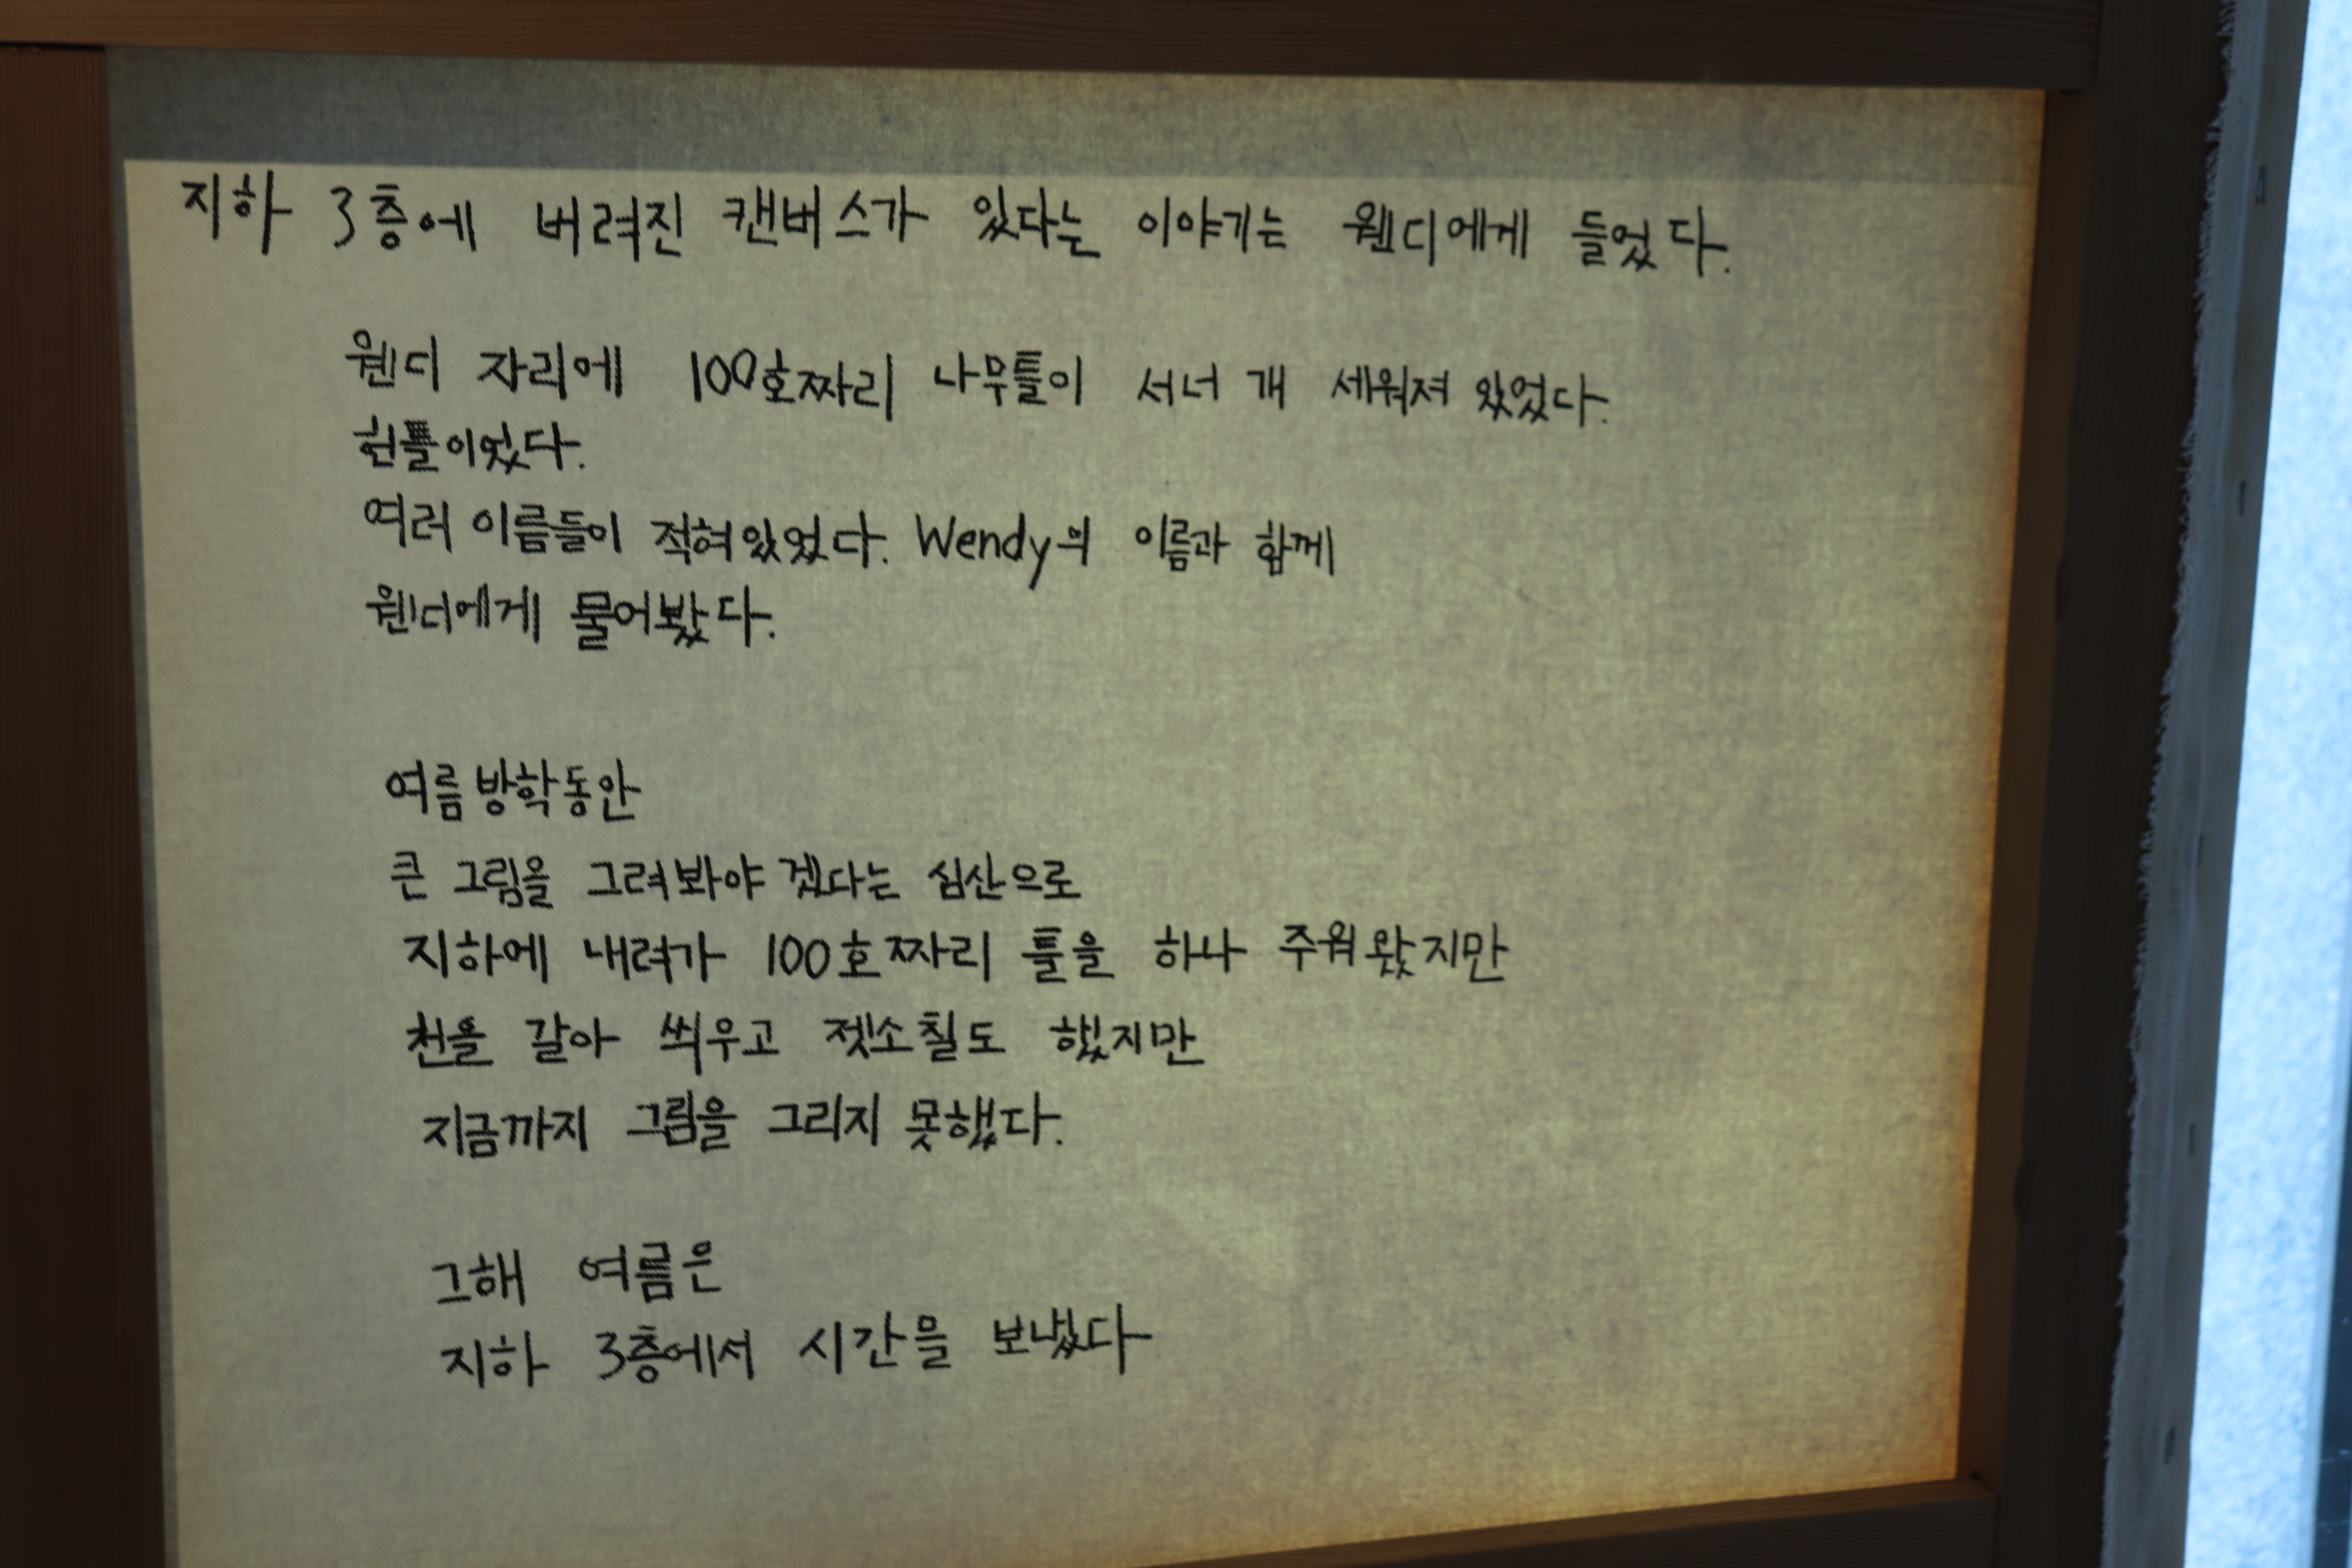 지하 3층에 버려진 캔버스가 있다는 이야기는 웬디에게 들었다.
웬디 자리에 100호짜리 나무틀이 서너 개 세워져 있었다.
헌틀이었다.
여러 이름들이 적혀있었다. Wendy의 이름과 함께
웬디에게 물어봤다.
여름방학동안
큰 그림을 그려봐야겠다는 심산으로
지하에 내려가 100호짜리 틀을 하나 주워왔지만
천을 갈아 씌우고 젯소칠도 했지만
지금까지 그림을 그리지 못했다.
그해 여름은
지하 3층에서 시간을 보냈다